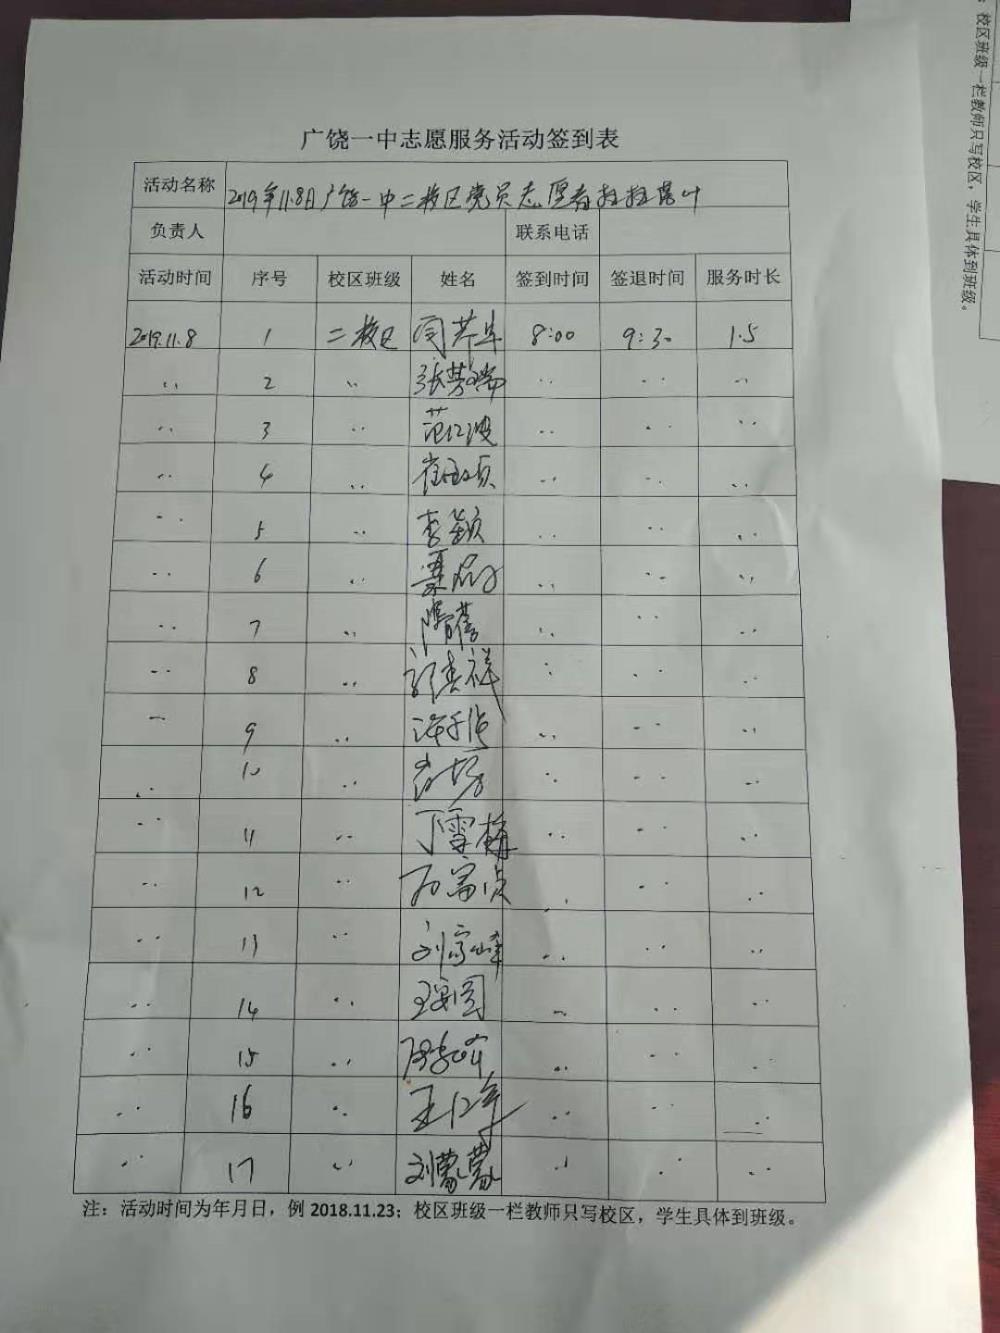 广饶一中志愿服务活动签到表
活动名称 2019年11.8日广饶一中二校区党员志愿者扫落叶
负责人 联系电话
活动时间 序号 校区班级 姓名 签到时间 签退时间 服务时长
2019.11.8 1 二校区 8:00 9:30 1.5
〃 2 〃 〃 〃 〃
〃 3 〃 范江波 〃 〃 〃
〃 4 〃 〃 〃 〃
〃 5 〃 李颖 〃 〃 〃
〃 6 〃 〃 〃 〃
〃 7 〃 隋蓓 〃 〃 〃
〃 8 〃 郭春祥 〃 〃 〃
〃 9 〃 〃 〃 〃
〃 10 〃 〃 〃 〃
〃 11 〃 丁雪梅 〃 〃 〃
〃 12 〃 〃 〃 〃
〃 13 〃 刘家峰 〃 〃 〃
〃 14 〃 〃 〃 〃
〃 15 〃 〃 〃 〃
〃 16 〃 王仁年 〃 〃 〃
〃 17 〃 刘蒙蒙 〃 〃 〃
注：活动时间为年月日，例 2018.11.23；校区班级一栏教师只写校区，学生具体到班级。
：校区班级一栏教师只写校区，学生具体到班级。